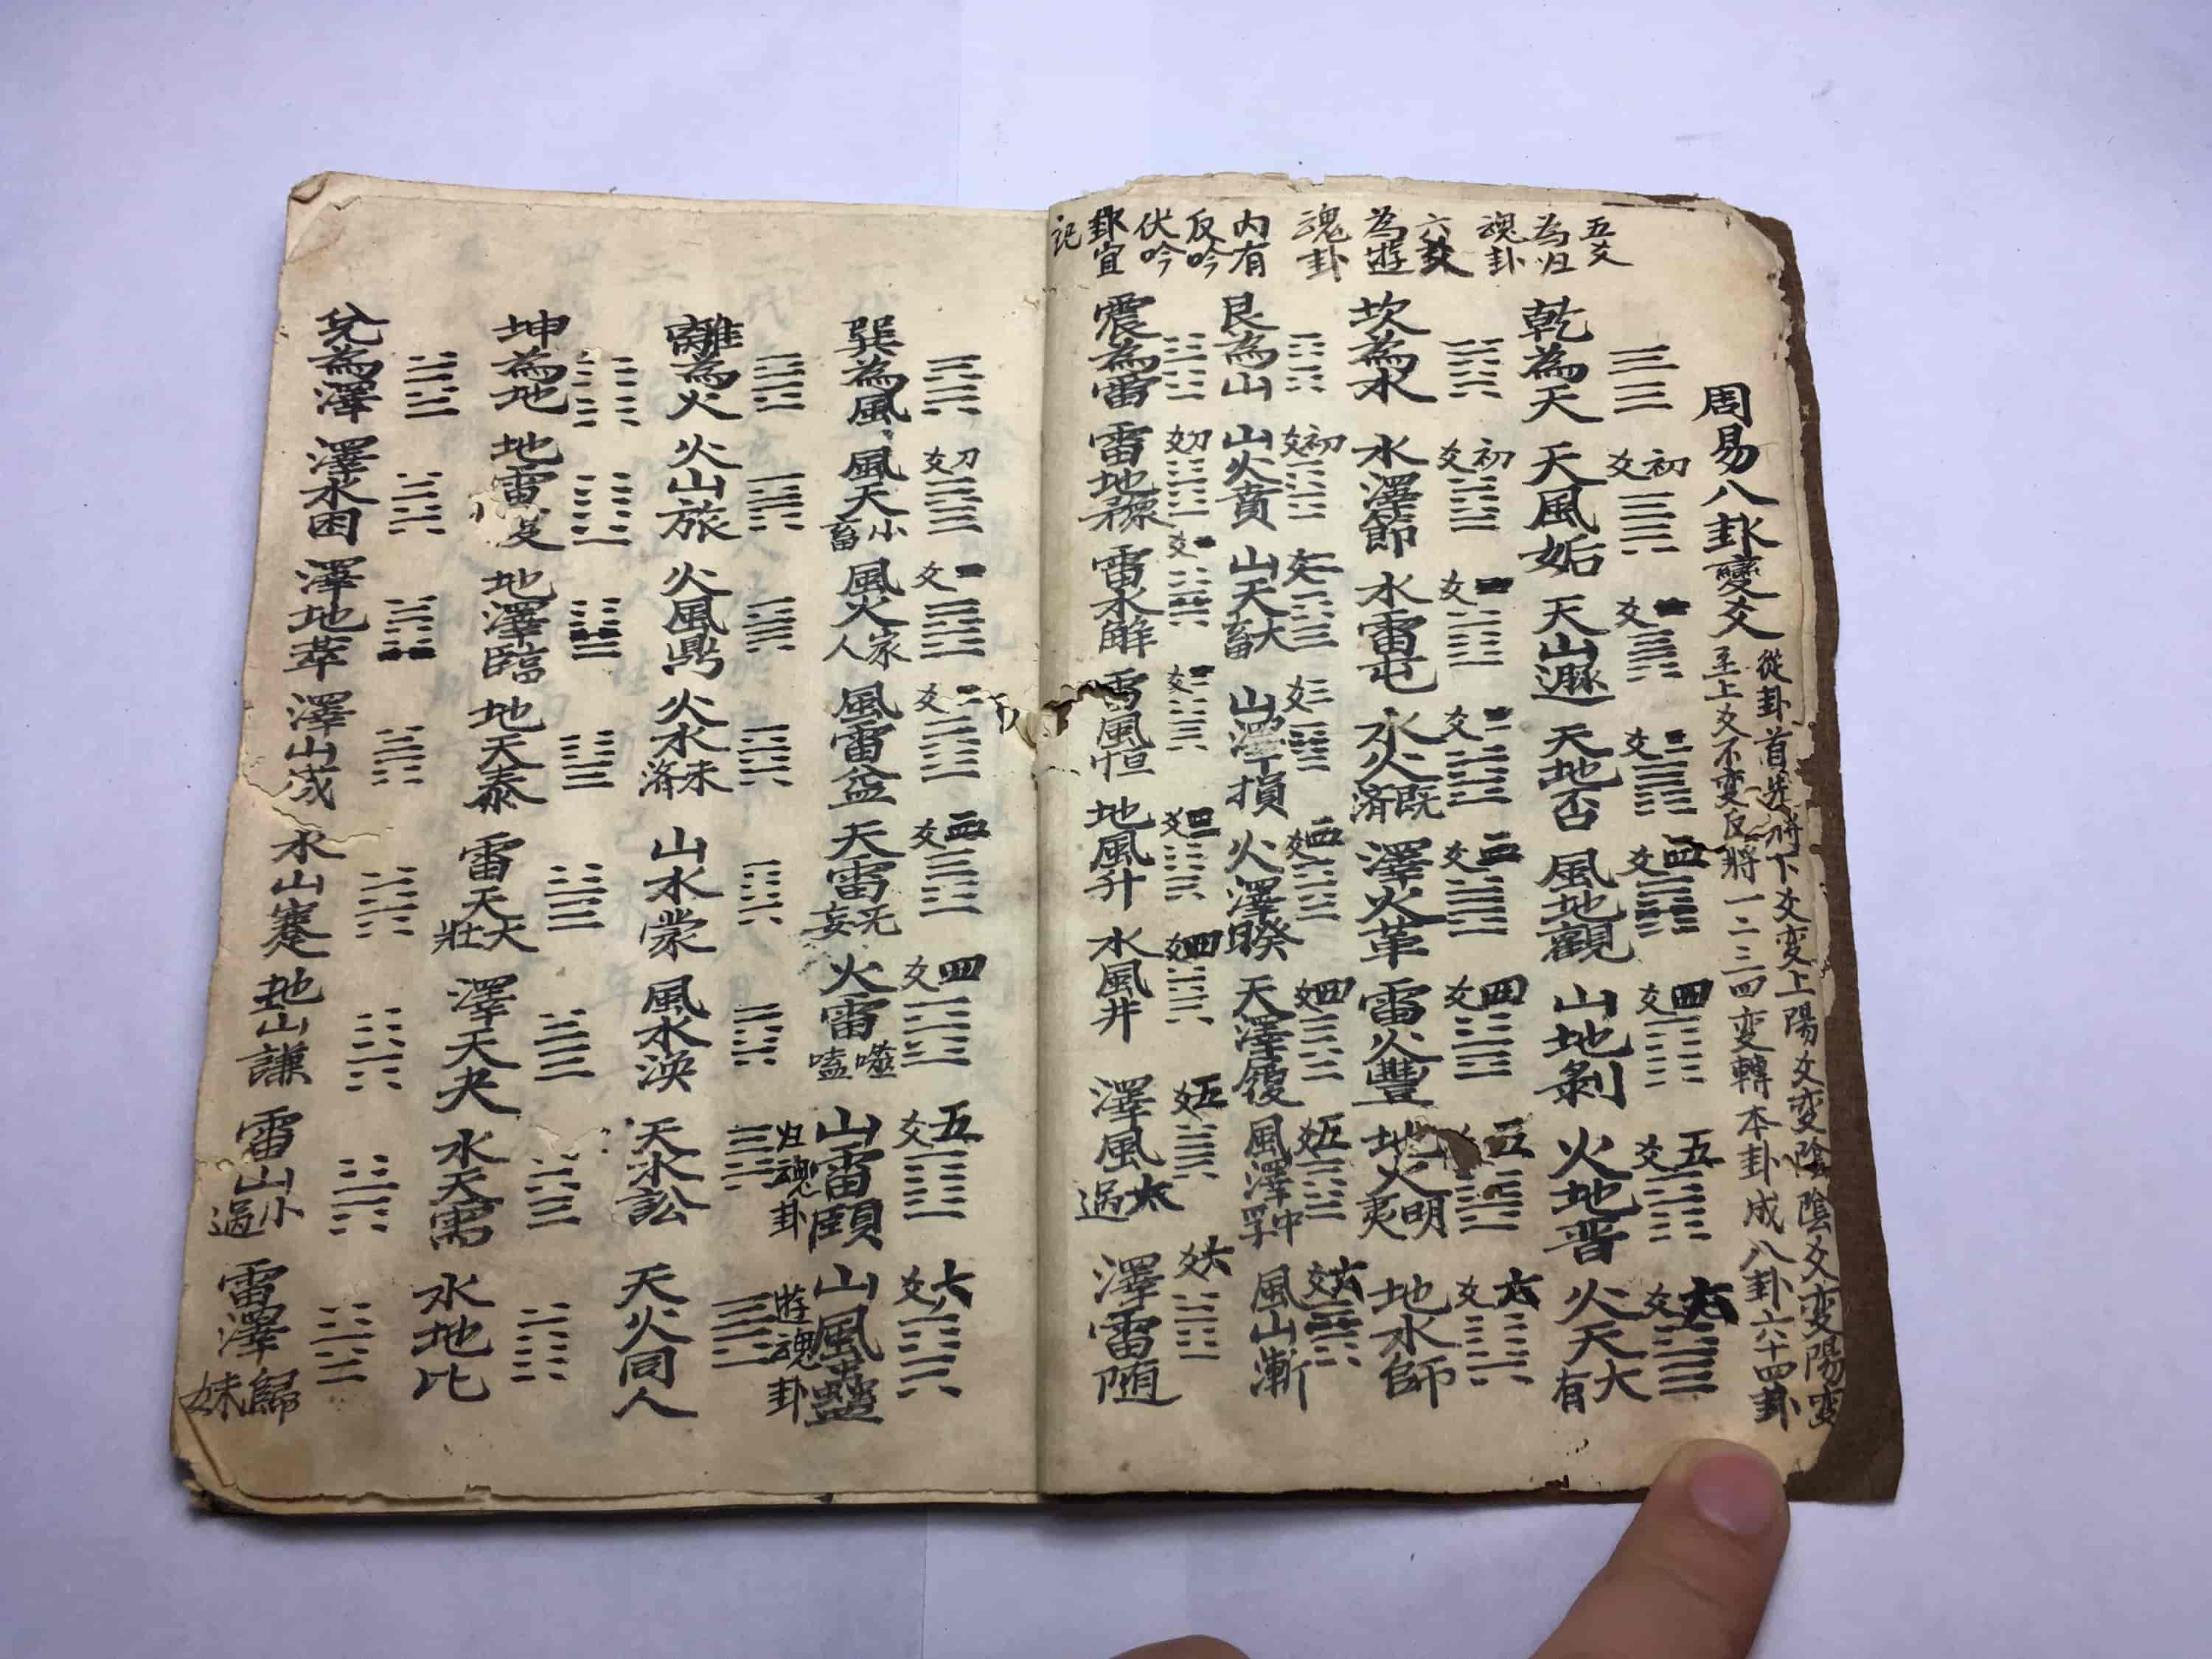 周易八卦變爻
從卦首先將下爻变上陽爻变陰陰爻变陽变
至上爻不变反將一二三四变轉本卦成八卦六十四卦
五爻
為归
魂卦
六爻
為遊
魂卦
內有
反吟
伏吟
卦宜
記
乾為天 天風姤 天山遯 天地否 風地觀 山地剝 火地晋 火天大有
初爻 二爻 三爻 四爻 四爻 五爻 六爻
坎為水 水澤節 水雷屯 水火既済 澤火革 雷火豐 地火明夷 地水師
初爻 二爻 三爻 四爻 五爻 六爻
艮為山 山火賁 山天大畜 山澤損 火澤睽 天澤履 風澤中孚 風山漸
初爻 二爻 三爻 四爻 五爻 六爻
震為雷 雷地豫 雷水解 雷風恒 地風升 水風井 澤風太過 澤雷随
初爻 四爻 五爻 六爻
巽為風 風天小畜 風火家人 風雷益 天雷无妄 火雷噬嗑 山雷頤 山風蠱
初爻 二爻 四爻 五爻 六爻
归魂卦
遊魂卦
離為火 火山旅 火風鼎 火水未濟 山水蒙 風水渙 天水訟 天火同人
坤為地 地雷复 地澤臨 地天泰 雷天大壯 澤天夬 水天需 水地比
兌為澤 澤水困 澤地萃 澤山咸 水山蹇 地山謙 雷山小過 雷澤歸妹